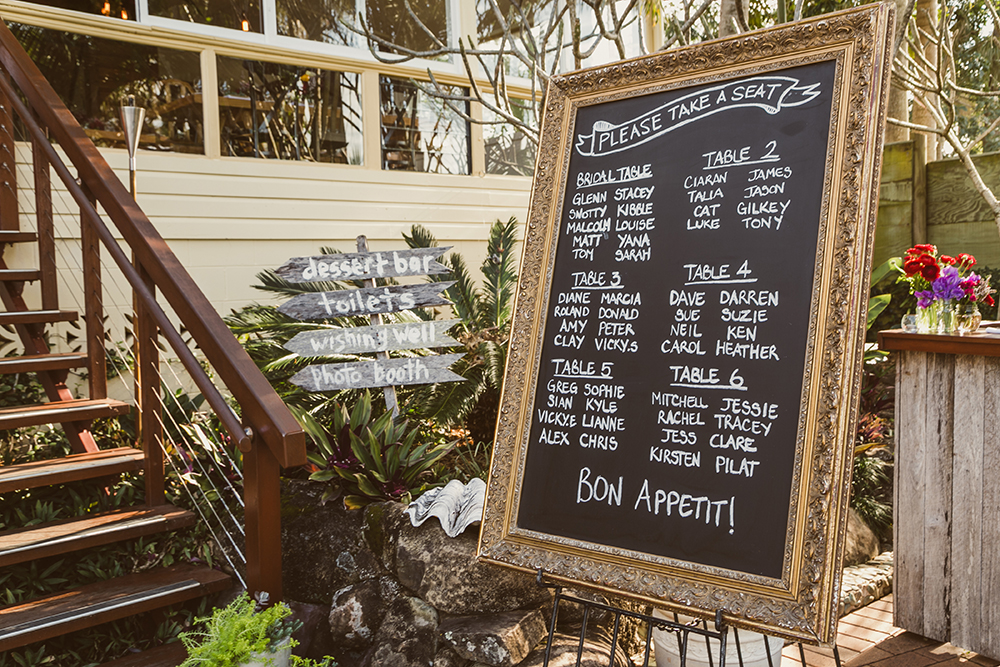 PLEASE TAKE A SEAT
BRIDAL TABLE
GLENN STACEY
SNOTTY KIBBLE
MALCOLM LOUISE
MATT YANA
TOM SARAH
TABLE 2
CIARAN JAMES
TALIA JASON
CAT GILKEY
LUKE TONY
TABLE 3
DIANE MARCIA
ROLAND DONALD
AMY PETER
CLAY VICKY.S
TABLE 4
DAVE DARREN
SUE SUZIE
NEIL KEN
CAROL HEATHER
TABLE 5
GREG SOPHIE
SIAN KYLE
VICKYE LIANNE
ALEX CHRIS
TABLE 6
MITCHELL JESSIE
RACHEL TRACEY
JESS CLARE
KIRSTEN PILAT
BON APPETIT!
dessert bar
toilets
wishing well
photo booth